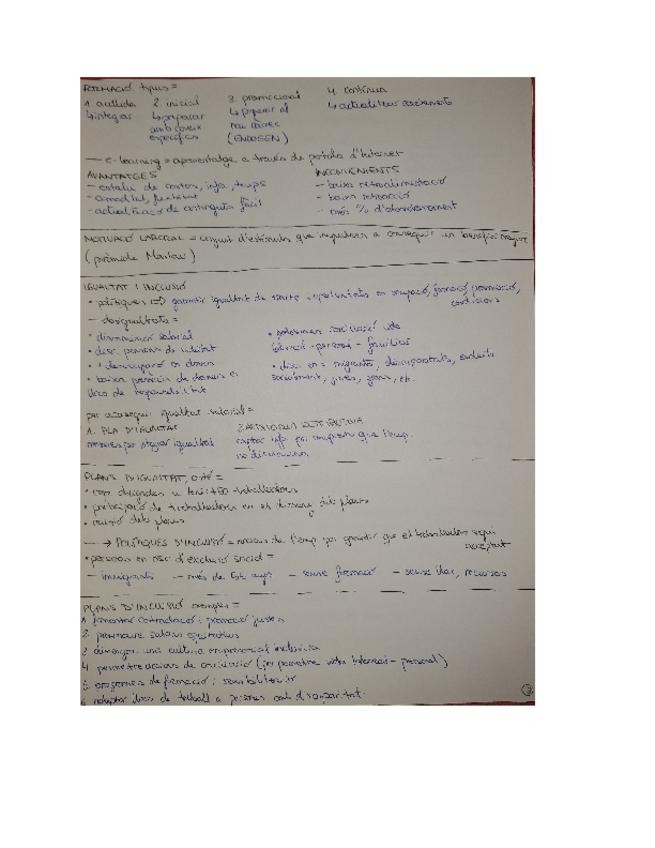 FORMACIÓ, tipus =
1. acollida 2. inicial 3. promocional 4. contínua
↳ integrar ↳ preparar ↳ preparar al ↳ actualitzar coneixements
amb coneix nou càrrec
específics (ENDOGEN)
— e-learning = aprenentatge a través de portals d'Internet
AVANTATGES INCONVENIENTS
- estalvi de costos, infra, temps - baixa retroalimentació
- comoditat, - baixa
- actualització de continguts fàcil - més % d'abandonament
MOTIVACIÓ LABORAL = conjunt d'estímuls que impulsen a conseguir un benefici major
(piràmide Maslow)
IGUALTAT I INCLUSIÓ
• polítiques => garantir igualtat de tracte i oportunitats en ocupació, formació, promoció,
condicions
— desigualtats =
• discriminació salarial
• desc. persones de
• desocupació en dones
• baixa presència de dones en
llocs de responsabilitat
• conciliació vida
laboral - personal - familiar
• disc. en: migrants, discapacitats,
, joves, grans, etc.
per aconseguir igualtat
1. PLA D'IGUALTAT
mesures per assegurar igualtat
captar info per comprovar que l'emp.
no discrimina
PLANS D'IGUALTAT,
• emp. obligades a tenir: +50 treballadors
• participació de treballadors en el disseny dels plans
• revisió dels plans
— → POLÍTIQUES D'INCLUSIÓ = mesures de l'emp. per garantir que el treballador sigui
acceptat
• persones en risc d'exclusió social =
- immigrants - més de anys - sense formació - sense llar, recursos
PLANS D'INCLUSIÓ exemples =
1. fomentar contractació i promoció justes
2. promoure salaris equitatius
3. una cultura empresarial inclusiva
4. permetre accions de conciliació (per vida laboral - personal)
5. programes de formació i sensibilització
6. adaptar llocs de treball a persones amb discapacitat